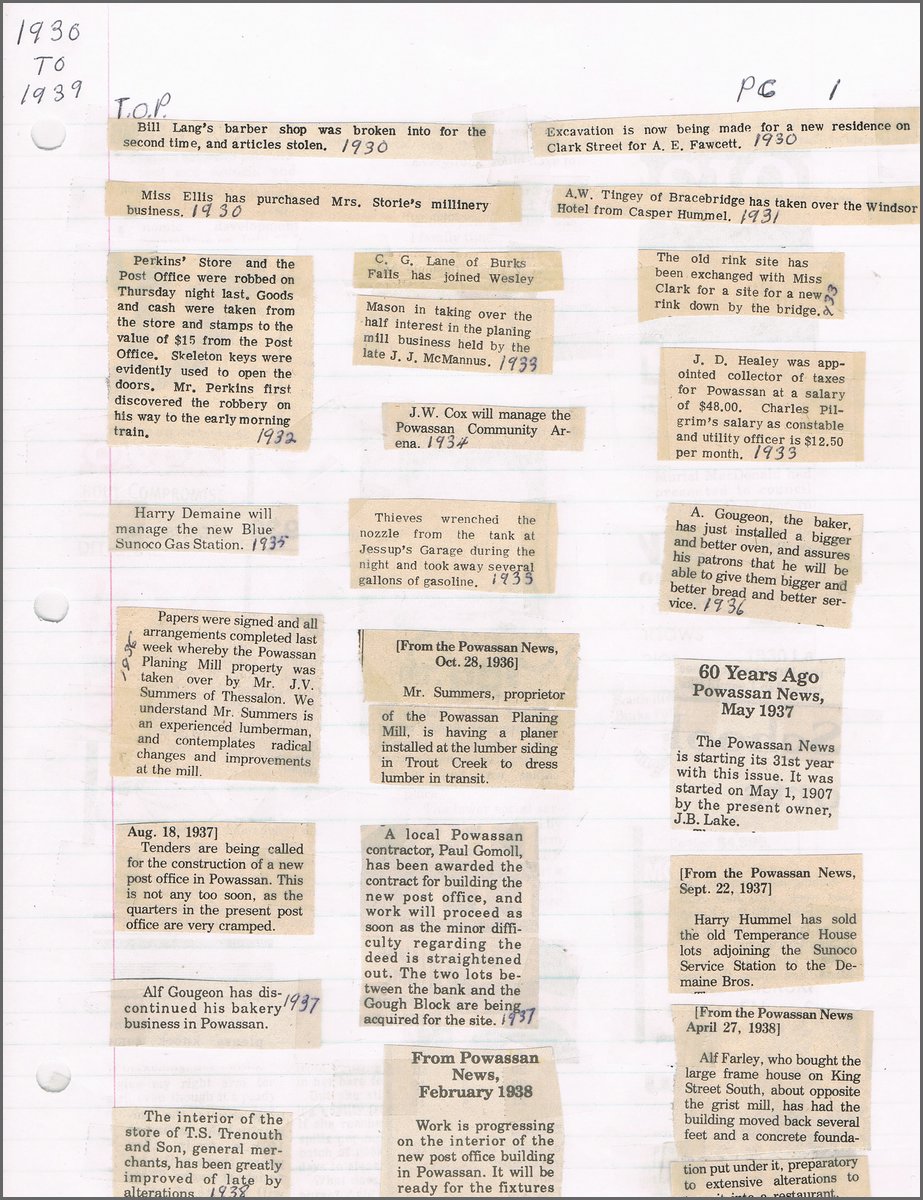 1930
TO
1939
T.O.P.
PG 1
Bill Lang's barber shop was broken into for the
second time, and articles stolen. 1930
Excavation is now being made for a new residence on
Clark Street for A. E. Fawcett. 1930
Miss Ellis has purchased Mrs. Storie's millinery
business. 1930
A.W. Tingey of Bracebridge has taken over the Windsor
Hotel from Casper Hummel. 1931
Perkins' Store and the
Post Office were robbed on
Thursday night last. Goods
and cash were taken from
the store and stamps to the
value of $15 from the Post
Office. Skeleton keys were
evidently used to open the
doors. Mr. Perkins first
discovered the robbery on
his way to the early morning
train. 1932
C. G. Lane of Burks
Falls has joined Wesley
Mason in taking over the
half interest in the planing
mill business held by the
late J. J. McMannus. 1933
The old rink site has
been exchanged with Miss
Clark for a site for a new
rink down by the bridge.
J. D. Healey was app-
ointed collector of taxes
for Powassan at a salary
of $48.00. Charles Pil-
grim's salary as constable
and utility officer is $12.50
per month. 1933
J.W. Cox will manage the
Powassan Community Ar-
ena. 1934
Harry Demaine will
manage the new Blue
Sunoco Gas Station. 1935
Thieves wrenched the
nozzle from the tank at
Jessup's Garage during the
night and took away several
gallons of gasoline. 1933
A. Gougeon, the baker,
has just installed a bigger
and better oven, and assures
his patrons that he will be
able to give them bigger and
better bread and better ser-
vice. 1936
Papers were signed and all
arrangements completed last
week whereby the Powassan
Planing Mill property was
taken over by Mr. J.V.
Summers of Thessalon. We
understand Mr. Summers is
an experienced lumberman,
and contemplates radical
changes and improvements
at the mill.
1936
[From the Powassan News,
Oct. 28, 1936]
Mr. Summers, proprietor
of the Powassan Planing
Mill, is having a planer
installed at the lumber siding
in Trout Creek to dress
lumber in transit.
60 Years Ago
Powassan News,
May 1937
The Powassan News
is starting its 31st year
with this issue. It was
started on May 1, 1907
by the present owner,
J.B. Lake.
Aug. 18, 1937]
Tenders are being called
for the construction of a new
post office in Powassan. This
is not any too soon, as the
quarters in the present post
office are very cramped.
A local Powassan
contractor, Paul Gomoll,
has been awarded the
contract for building the
new post office, and
work will proceed as
soon as the minor diffi-
culty regarding the
deed is straightened
out. The two lots be-
tween the bank and the
Gough Block are being
acquired for the site. 1937
[From the Powassan News,
Sept. 22, 1937]
Harry Hummel has sold
the old Temperance House
lots adjoining the Sunoco
Service Station to the De-
maine Bros.
Alf Gougeon has dis-
continued his bakery 1937
business in Powassan.
[From the Powassan News
April 27, 1938]
Alf Farley, who bought the
large frame house on King
Street South, about opposite
the grist mill, has had the
building moved back several
feet and a concrete founda-
tion put under it, preparatory
to extensive alterations to
it into a restaurant.
From Powassan
News,
February 1938
Work is progressing
on the interior of the
new post office building
in Powassan. It will be
ready for the fixtures
The interior of the
store of T.S. Trenouth
and Son, general mer-
chants, has been greatly
improved of late by
alterations. 1938